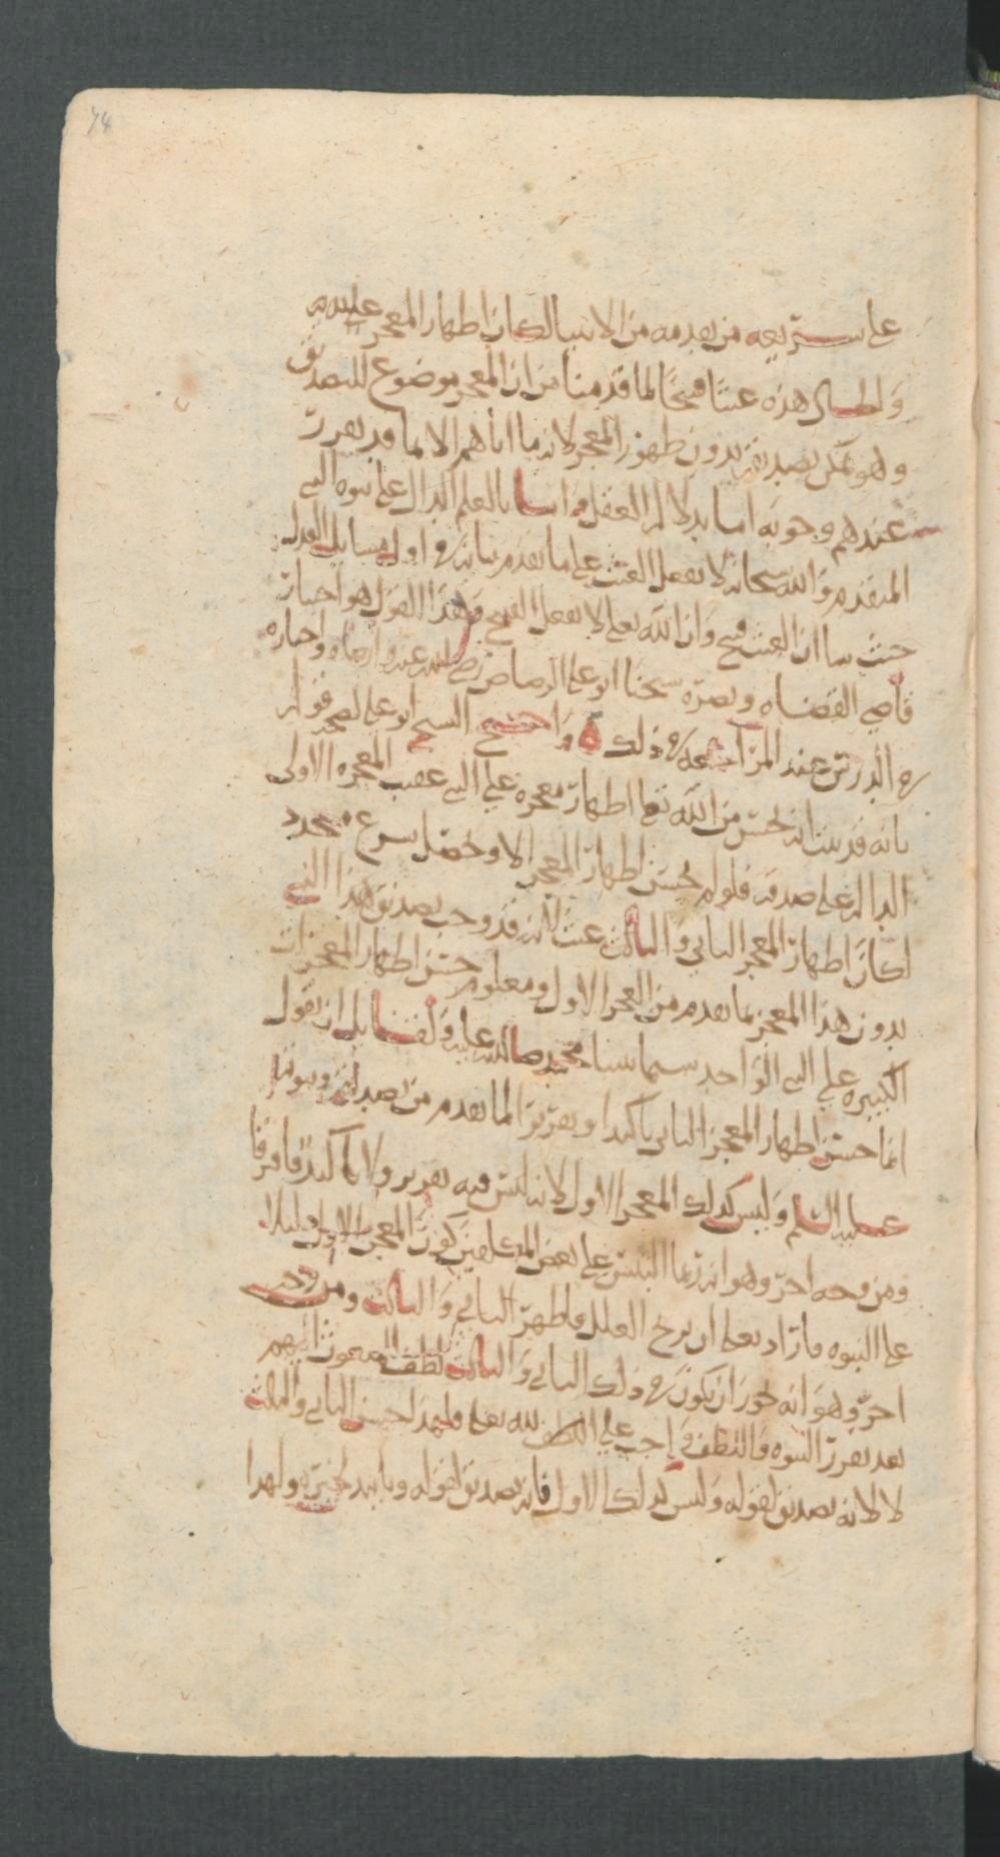 على شريعه من تقدمه من الانبيا لكان اظهار المعجز عليه
والحال هذه عبثا قبيحا لما قدمنا من ان المعجز موضوع للتصديق
وهو ممكن تصديقه بدون ظهور المعجز لانه ما اتاهم الا بما قد تقرر
عندهم وجوبه اما بدلالة العقل واما بالعلم الدال على نبوه النبي
المتقدم والله سبحانه لا يفعل العبث على ما تقدم بيانه في اول مسايل العدل
حيث بينا ان العبث قبيح وان الله تعالى لا يفعل القبيح وهذا القول هو اختيار
قاضي القضاه ونصره شيخنا ابو علي الرصاص رضي الله عنه وارضاه واختاره
في الدرس عند المراجعه في ذلك ٥ واحتج الشيخ ابو علي لصحه قوله
بانه قد ثبت انه يحسن من الله تعالى اظهار معجزه على النبي عقيب المعجزه الاولى
الداله على صدقه فلو لم يحسن اظهار المعجز الا وحصل شرع مجدد
لكان اظهار المعجز الثاني والثالث عبثا لانه قد وجب تصديق هذا النبي
بدون هذا المعجز بما تقدم من المعجز الاول ومعلوم حسن اظهار المعجزات
الكثيره على النبي الواحد سيما نبينا محمد صلى الله عليه ولقايل ان يقول
انما حسن اظهار المعجز الثاني تاكيدا وتقريرا لما تقدم من تصديقه ونبوته
عليه السلم وليس كذلك المعجز الاول لانه ليس فيه تقرير ولا تاكيد فافترقا
ومن وجه اخر وهو انه ربما التبس على بعض المكلفين كون المعجز الاول دليلا
على النبوه فاراد تعالى ان يزيح العلل فاظهر الثاني والثالث ومن وجه
اخر وهو انه يجوز ان يكون في ذلك الثاني والثالث لطف للمبعوث اليهم
بعد تقرر النبوه واللطف واجب على الله تعالى فلهذا حسن الثاني والثالث
لا لانه تصديق لقوله وليس كذلك الاول فانه تصديق لقوله ولهذا